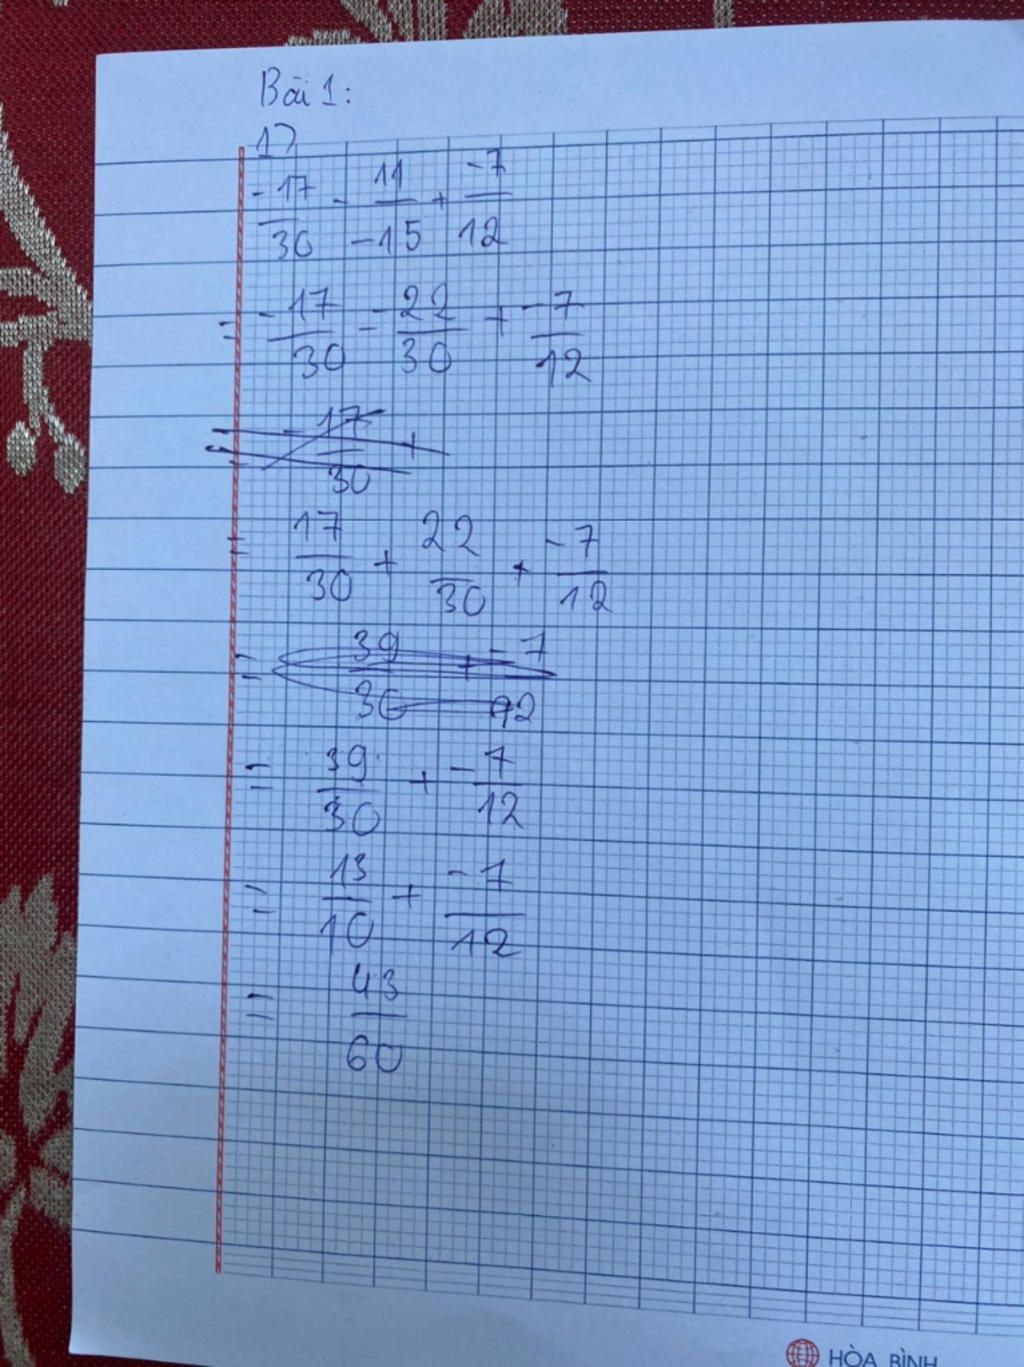 Bài 1:
17
-17/30 - 11/-15 + -7/12
= -17/30 - -22/30 + -7/12
= -17/30 +
= 17/30 + 22/30 + -7/12
= 39/30 + -7/12
= 39/30 + -7/12
= 13/10 + -7/12
= 43/60
HÒA BÌNH